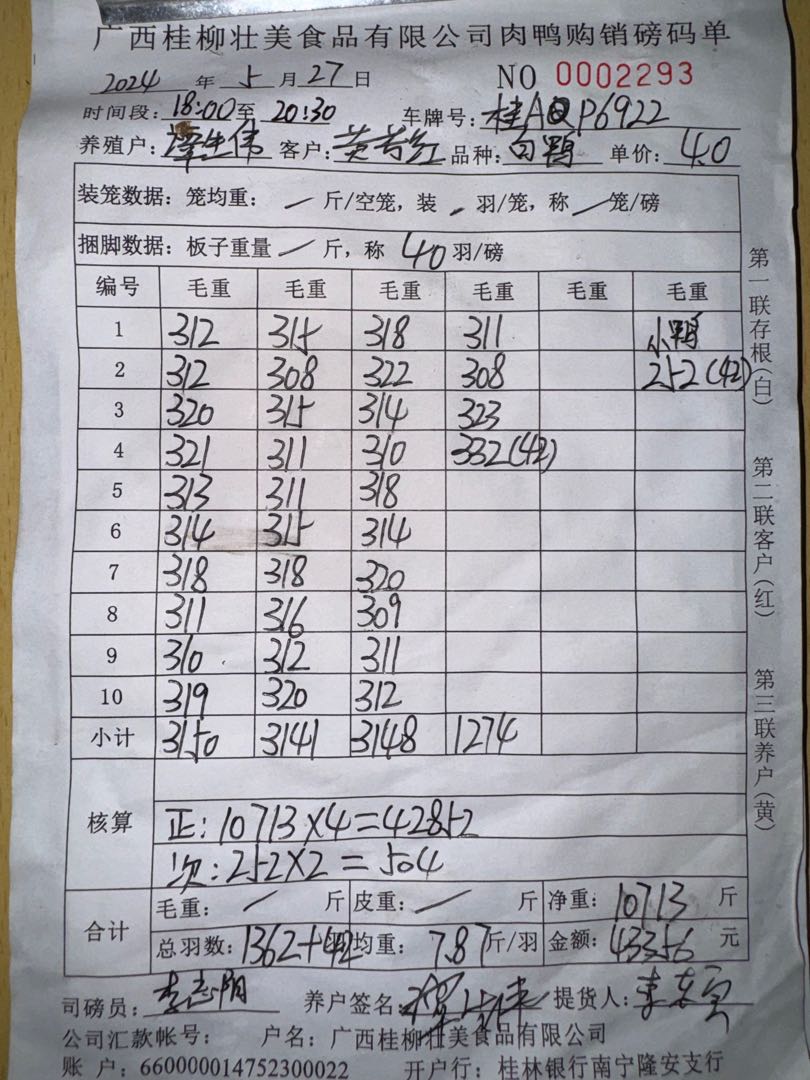 广西桂柳壮美食品有限公司肉鸭购销磅码单
2024 年 5 月 27 日 NO 0002293
时间段: 18:00 至 20:30 车牌号: 桂AQP6922
养殖户: 客户: 黄芳红 品种: 白鸭 单价: 4.0
装笼数据: 笼均重: / 斤/空笼, 装 / 羽/笼, 称 / 笼/磅
捆脚数据: 板子重量 / 斤, 称 40 羽/磅
编号 毛重 毛重 毛重 毛重 毛重 毛重
1 312 315 318 311 小鸭
2 312 308 322 308 252(42)
3 320 315 314 323
4 321 311 310 332(42)
5 313 311 318
6 314 315 314
7 318 318 320
8 311 316 309
9 310 312 311
10 319 320 312
小计 3150 3141 3148 1274
核算
正: 10713×4=42852
次: 252×2=504
合计
毛重: / 斤 皮重: / 斤 净重: 10713 斤
总羽数: 1362+42 均重: 7.87 斤/羽 金额: 43356 元
司磅员: 李志阳 养户签名: 提货人:
公司汇款帐号: 户名: 广西桂柳壮美食品有限公司
账 户: 660000014752300022 开户行: 桂林银行南宁隆安支行
第一联存根(白)
第二联客户(红)
第三联养户(黄)